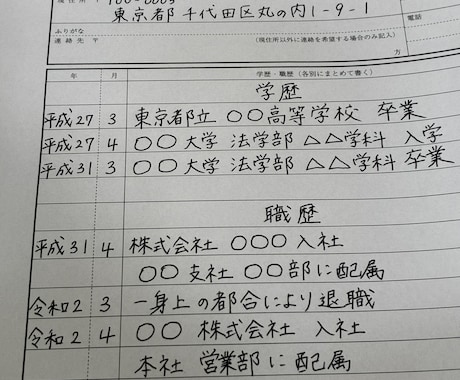 東京都 千代田区丸の内1-9-1
ふりがな
電話
連絡先 〒
(現住所以外に連絡を希望する場合のみ記入)
方
年 月 学歴・職歴 (各別にまとめて書く)
学歴
平成27 3 東京都立 〇〇高等学校 卒業
平成27 4 〇〇大学 法学部 △△学科 入学
平成31 3 〇〇大学 法学部 △△学科 卒業
職歴
平成31 4 株式会社 〇〇〇 入社
〇〇支社 〇〇部に配属
令和2 3 一身上の都合により退職
令和2 4 〇〇 株式会社 入社
本社 営業部に配属